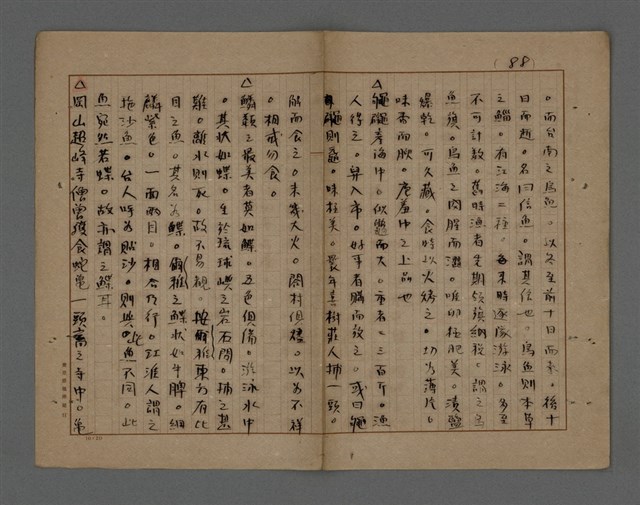 (88)
。而台南之烏魚。以冬至前十日而來。後十
日而廻。名曰信魚。謂其信也。烏魚則本草
之鯔。有江海二種。每來時逐隊游泳。多至
不可計數。舊時漁者先期領旗納稅。謂之烏
魚旗。烏魚之閒腥而澀。唯卵極肥美。漬鹽
燥乾。可久藏。食時以火烤之。切為薄片。
味香而腴。庖羞中之上品也
△䱇產海中。似龜而大。亦有二三百斤。漁
人得之。舁入市。好事者購而放之。或曰䱇
則䱇。味極美。最年喜樹莊人捕一頭。
刣而食之。未幾大火。闔村俱燬。以為不祥
。相戒勿食。
△鱗類之最美者莫如鰈。五色俱備。游泳水中
。其狀如蝶。生於琉球嶼之岩石間。捕之甚
難。離水則死。故不易覩。按爾雅東方有比
目之魚。其名為鰈。爾雅之鰈狀如牛脾。細
鱗紫色。一面兩目。相合乃行。江淮人謂之
拖沙魚。台人呼為貼沙。則與此魚不同。此
魚宛然若蝶。故亦謂之鰈耳。
△岡山超峰寺僧曾獲食蛇龜一頭。畜之寺中。龜